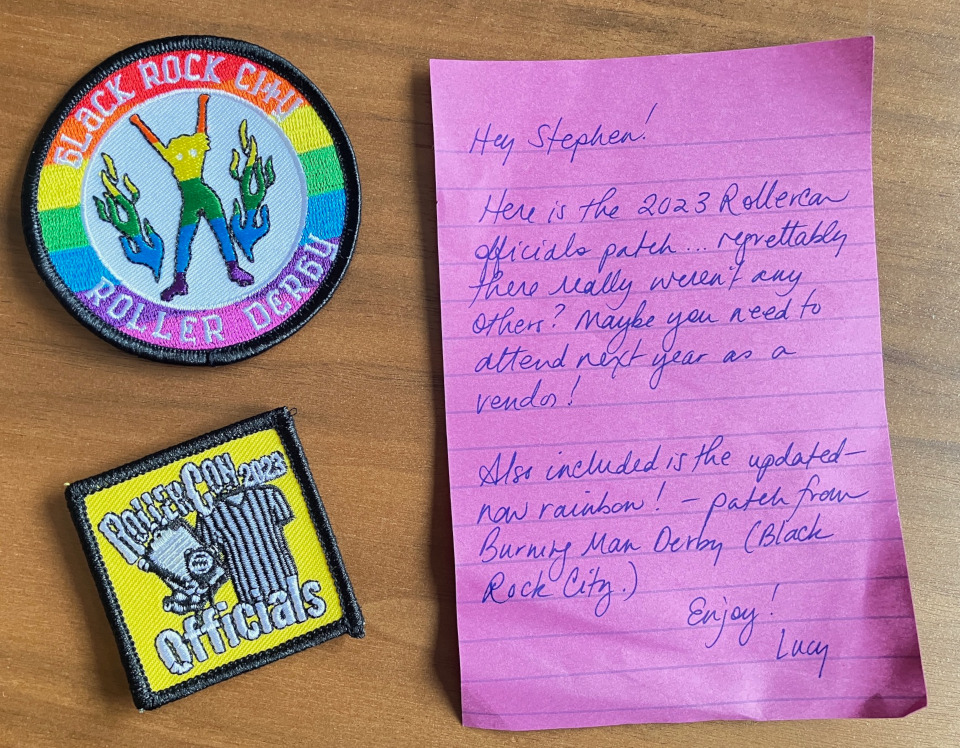 BLACK ROCK CITY
ROLLER DERBY
ROLLERCON
2023
Officials
Hey Stephen!
Here is the 2023 Rollercon
officials patch... regrettably
there really weren't any
others? Maybe you need to
attend next year as a
vendor!
Also included is the updated-
now rainbow! - patch from
Burning Man Derby (Black
Rock City.)
Enjoy!
Lucy